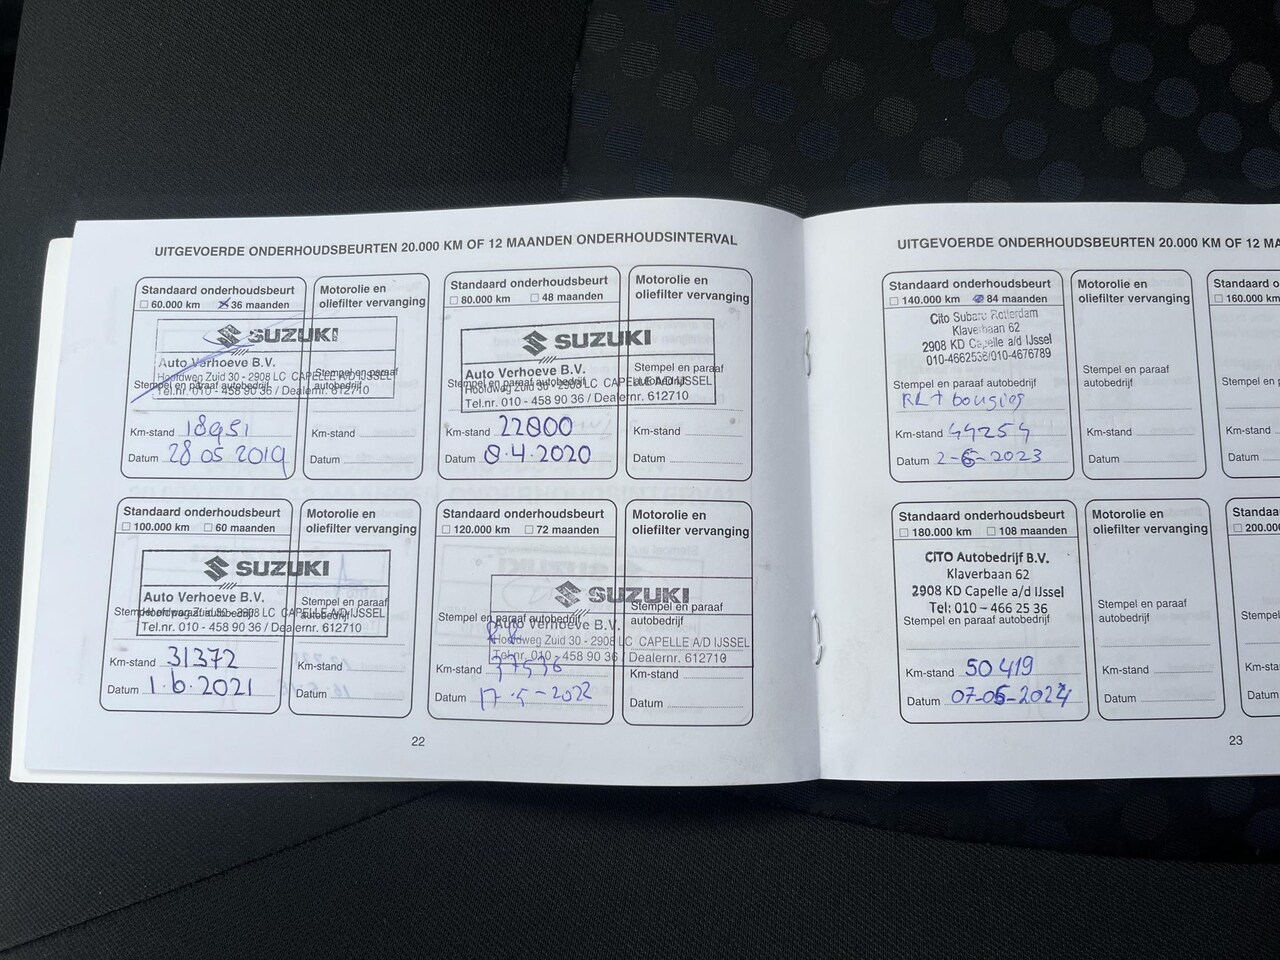 UITGEVOERDE ONDERHOUDSBEURTEN 20.000 KM OF 12 MAANDEN ONDERHOUDSINTERVAL
Standaard onderhoudsbeurt
60.000 km 36 maanden
Motorolie en
oliefilter vervanging
SUZUKI
Auto Verhoeve B.V.
Hoofdweg Zuid 30 - 2908 LC CAPELLE A/D IJSSEL
Tel.nr. 010 - 458 90 36 / Dealernr. 612710
Stempel en paraaf autobedrijf
Stempel en paraaf
autobedrijf
Km-stand 18951
Datum 28 05 2019
Km-stand
Datum
Standaard onderhoudsbeurt
80.000 km 48 maanden
Motorolie en
oliefilter vervanging
SUZUKI
Auto Verhoeve B.V.
Hoofdweg Zuid 30 - 2908 LC CAPELLE A/D IJSSEL
Tel.nr. 010 - 458 90 36 / Dealernr. 612710
Stempel en paraaf autobedrijf
Stempel en paraaf
autobedrijf
Km-stand 22800
Datum 8.4.2020
Km-stand
Datum
Standaard onderhoudsbeurt
100.000 km 60 maanden
Motorolie en
oliefilter vervanging
SUZUKI
Auto Verhoeve B.V.
Hoofdweg Zuid 30 - 2908 LC CAPELLE A/D IJSSEL
Tel.nr. 010 - 458 90 36 / Dealernr. 612710
Stempel en paraaf autobedrijf
Stempel en paraaf
autobedrijf
Km-stand 31372
Datum 1.6.2021
Km-stand
Datum
Standaard onderhoudsbeurt
120.000 km 72 maanden
Motorolie en
oliefilter vervanging
SUZUKI
Auto Verhoeve B.V.
Hoofdweg Zuid 30 - 2908 LC CAPELLE A/D IJSSEL
Tel.nr. 010 - 458 90 36 / Dealernr. 612710
Stempel en paraaf autobedrijf
Stempel en paraaf
autobedrijf
Km-stand 37536
Datum 17-5-2022
Km-stand
Datum
22
UITGEVOERDE ONDERHOUDSBEURTEN 20.000 KM OF 12 MA
Standaard onderhoudsbeurt
140.000 km 84 maanden
Motorolie en
oliefilter vervanging
Cito Subaru Rotterdam
Klaverbaan 62
2908 KD Capelle a/d IJssel
010-4662536/010-4676789
Stempel en paraaf autobedrijf
Stempel en paraaf
autobedrijf
RL+ bougies
Km-stand 44254
Datum 2-6-2023
Km-stand
Datum
Standaard o
160.000 km
Stempel en p
Km-stand
Datum
Standaard onderhoudsbeurt
180.000 km 108 maanden
Motorolie en
oliefilter vervanging
CITO Autobedrijf B.V.
Klaverbaan 62
2908 KD Capelle a/d IJssel
Tel: 010 – 466 25 36
Stempel en paraaf autobedrijf
Stempel en paraaf
autobedrijf
Km-stand 50419
Datum 07-05-2024
Km-stand
Datum
Standaa
200.00
Stempel
Km-stan
Datum
23